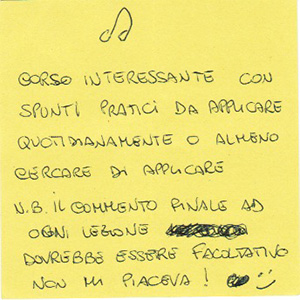 CORSO INTERESSANTE CON
SPUNTI PRATICI DA APPLICARE
QUOTIDIANAMENTE O ALMENO
CERCARE DI APPLICARE
N.B. IL COMMENTO FINALE AD
OGNI LEZIONE
DOVREBBE ESSERE FACOLTATIVO
NON MI PIACEVA!